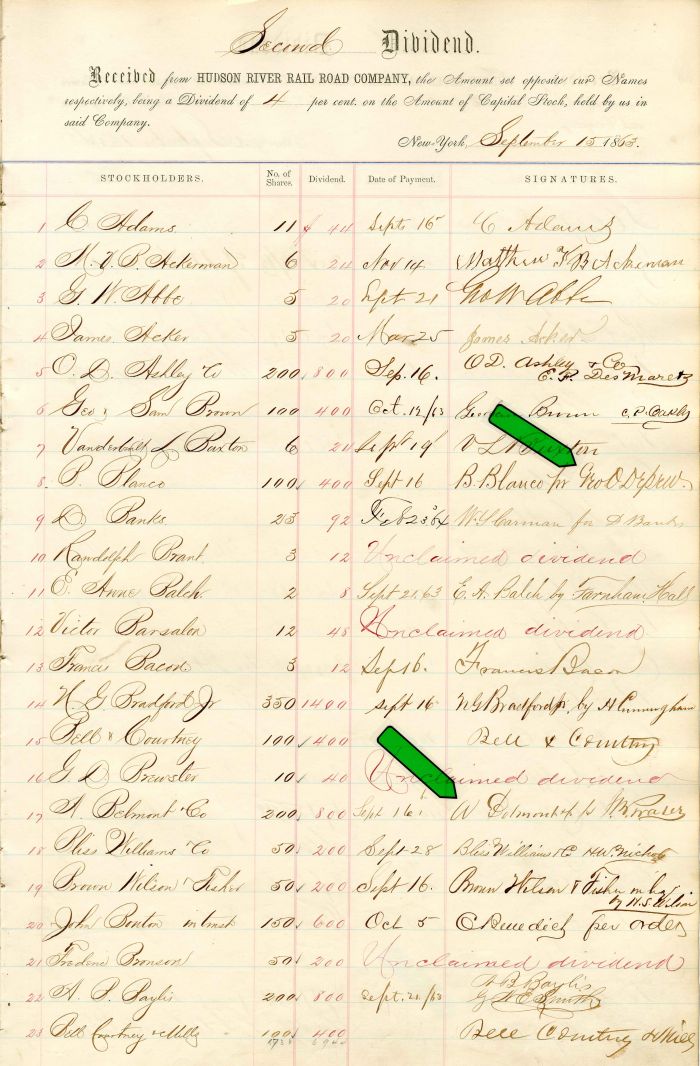 Second Dividend.
Received from HUDSON RIVER RAIL ROAD COMPANY, the Amount set opposite our Names
respectively, being a Dividend of 4 per cent. on the Amount of Capital Stock, held by us in
said Company.
New-York, September 15 1863.
STOCKHOLDERS. No. of Shares. Dividend. Date of Payment. SIGNATURES.
1 C Adams 11 $ 44 Septr 16 C Adams
2 M. V. B. Ackerman 6 24 Nov 14 Matthew V B Ackerman
3 G. W. Abbe 5 20 Sept 21 Geo W Abbe
4 James Acker 5 20 Mar 25 James Acker
5 O. D. Ashley & Co 200 800 Sep. 16. O D. Ashley & Co
E. P. Des Maretz
6 Geo & Sam Brown 100 400 Oct. 12/63 Brown
7 Vanderbilt L Buxton 6 24 Sept 19 V L Buxton
8 B. Blanco 100 400 Sept 16 B. Blanco pr Geo O DePew
9 D Banks 23 92 Feb 23 64 W S Carman for D Banks
10 Randolph Brant 3 12 Unclaimed dividend
11 E. Anne Balch 2 8 Sept 21, 63 E. A. Balch by Farnham Hall
12 Victor Barsalon 12 48 Unclaimed dividend
13 Francis Bacon 3 12 Sep 16. Francis Bacon
14 N G Bradford Jr 350 1400 Sept 16 N G Bradford Jr. by H Cunningham
15 Bell & Courtney 100 400 Bell & Courtney
16 G D Brewster 10 40 Unclaimed dividend
17 A. Belmont & Co 200 800 Sept 16. Belmont
18 Bliss Williams & Co 50 200 Sept 28 Bliss Williams & Co H. W. Nichols
19 Brown Wilson & Fisher 50 200 Sept 16. Brown Wilson & Fisher
by H. S. Wilson
20 John Bonton in trust 150 600 Oct 5 C Benedict per order
21 Frederic Bronson 50 200 Unclaimed dividend
22 A. B. Baylis 200 800 Sept. 21/63 A B Baylis
Smith
23 Bell Courtney & Mills 100 400 Bell Courtney & Mills